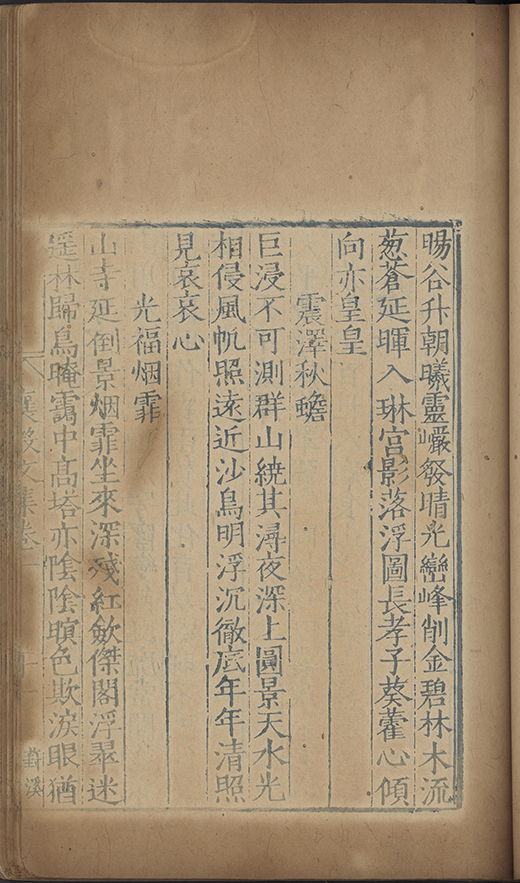 暘谷升朝曦靈巖發晴光巒峰削金碧林木流
葱蒼延暉入琳宫影落浮圖長孝子葵藿心傾
向亦皇皇
震澤秋蟾
巨浸不可測群山繞其潯夜深上圓景天水光
相侵風帆照遠近沙鳥明浮沉徹底年年清照
見哀哀心
光福烟霏
山寺延倒景烟霏坐來深殘紅歛傑閣浮翠迷
遥林歸鳥暗靄中髙塔亦陰陰暝色欺淚眼猶
文集卷一